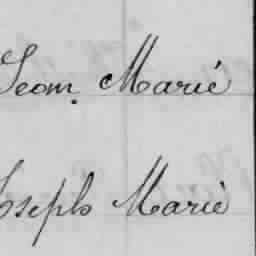 Leon Marie
Joseph Marie